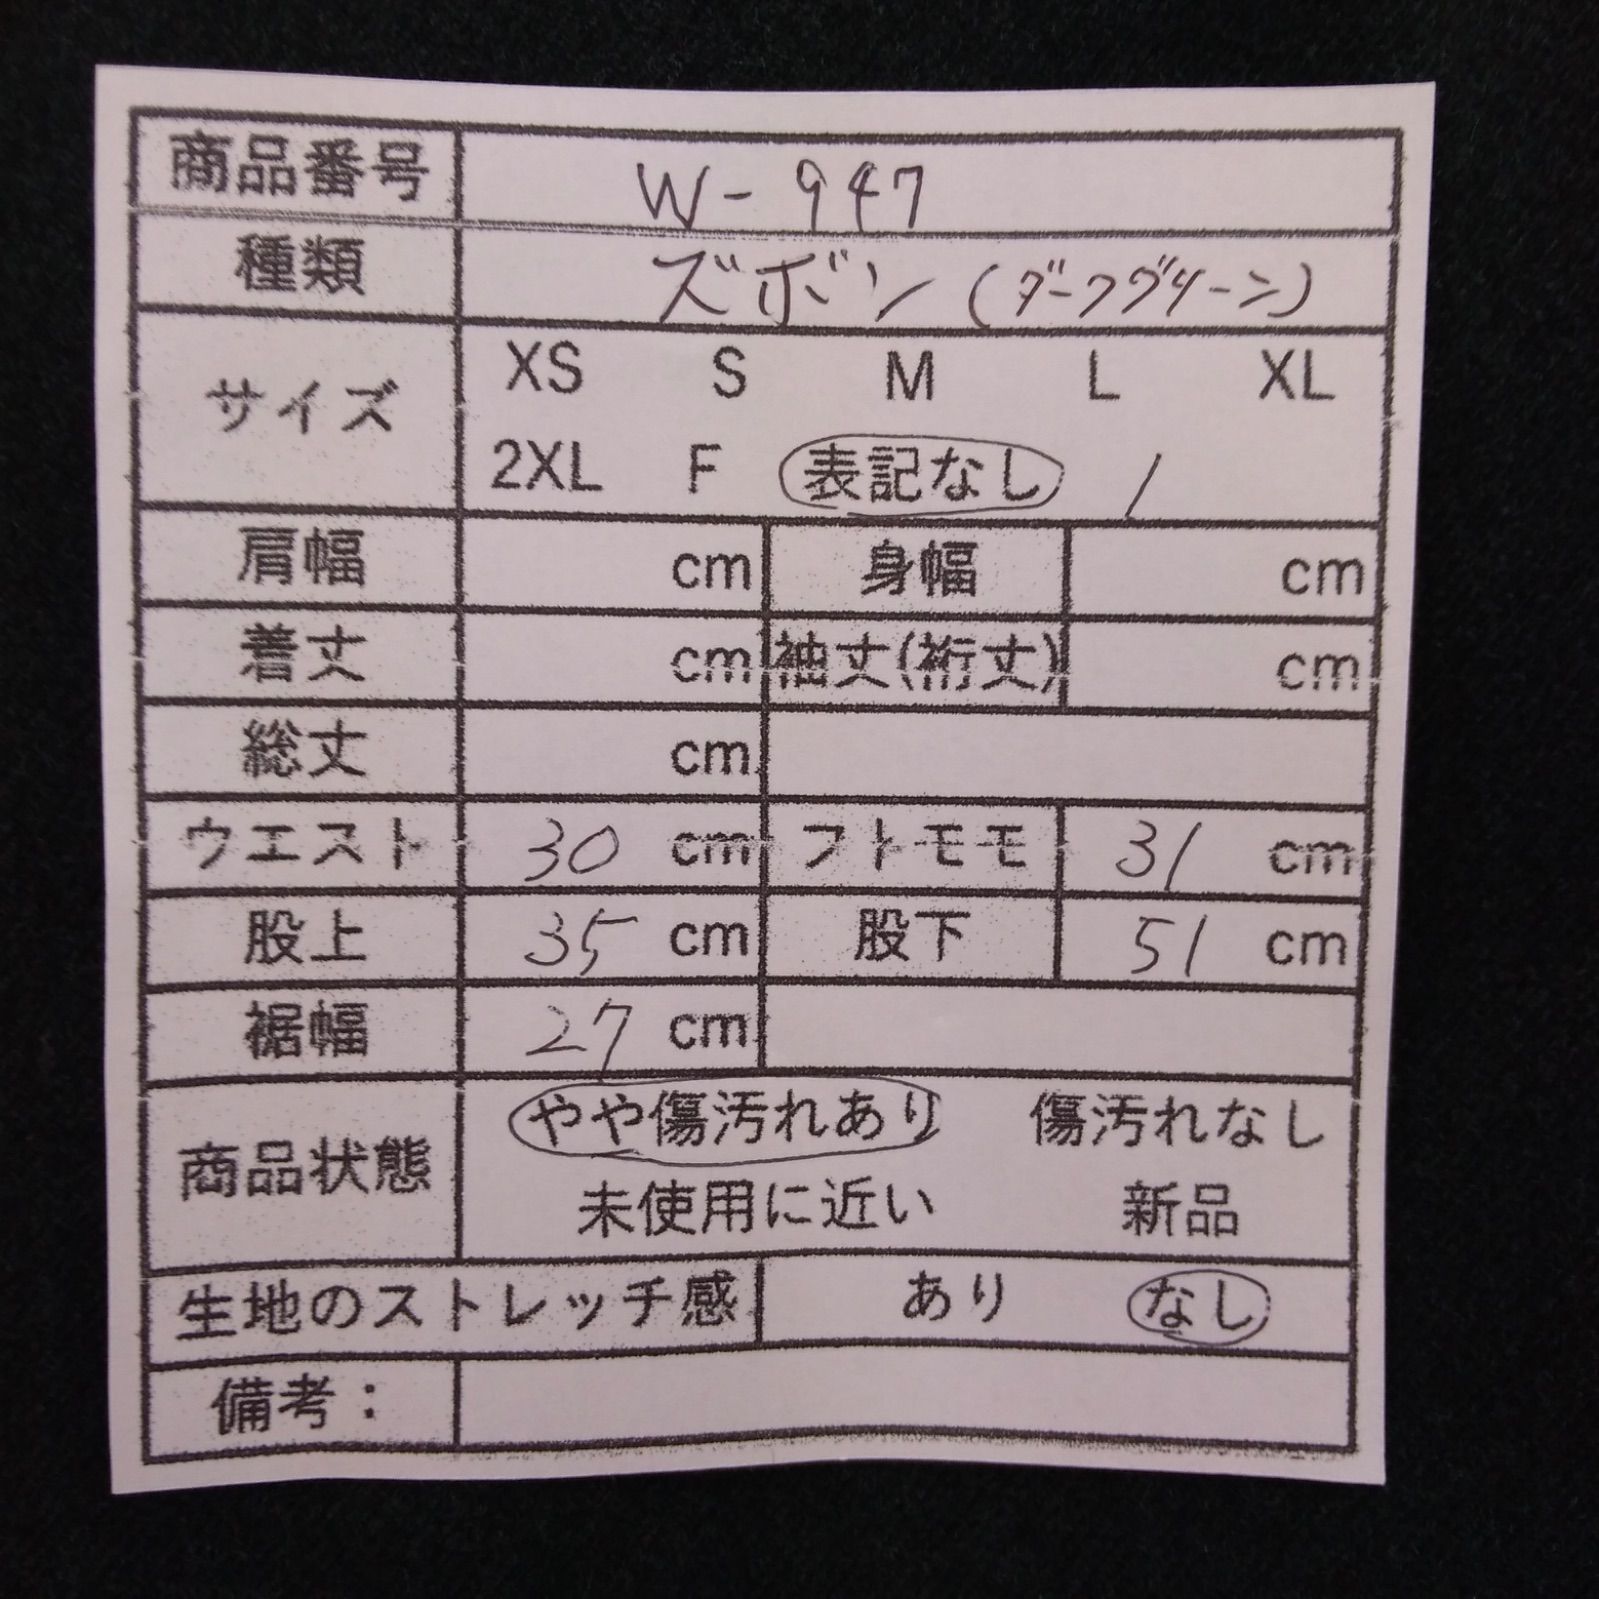 商品番号 W-947
種類 ズボン(ダークグリーン)
サイズ XS S M L XL
2XL F 表記なし /
肩幅 cm 身幅 cm
着丈 cm 袖丈(裄丈) cm
総丈 cm
ウエスト 30 cm フトモモ 31 cm
股上 35 cm 股下 51 cm
裾幅 27 cm
商品状態 やや傷汚れあり 傷汚れなし
未使用に近い 新品
生地のストレッチ感 あり なし
備考：